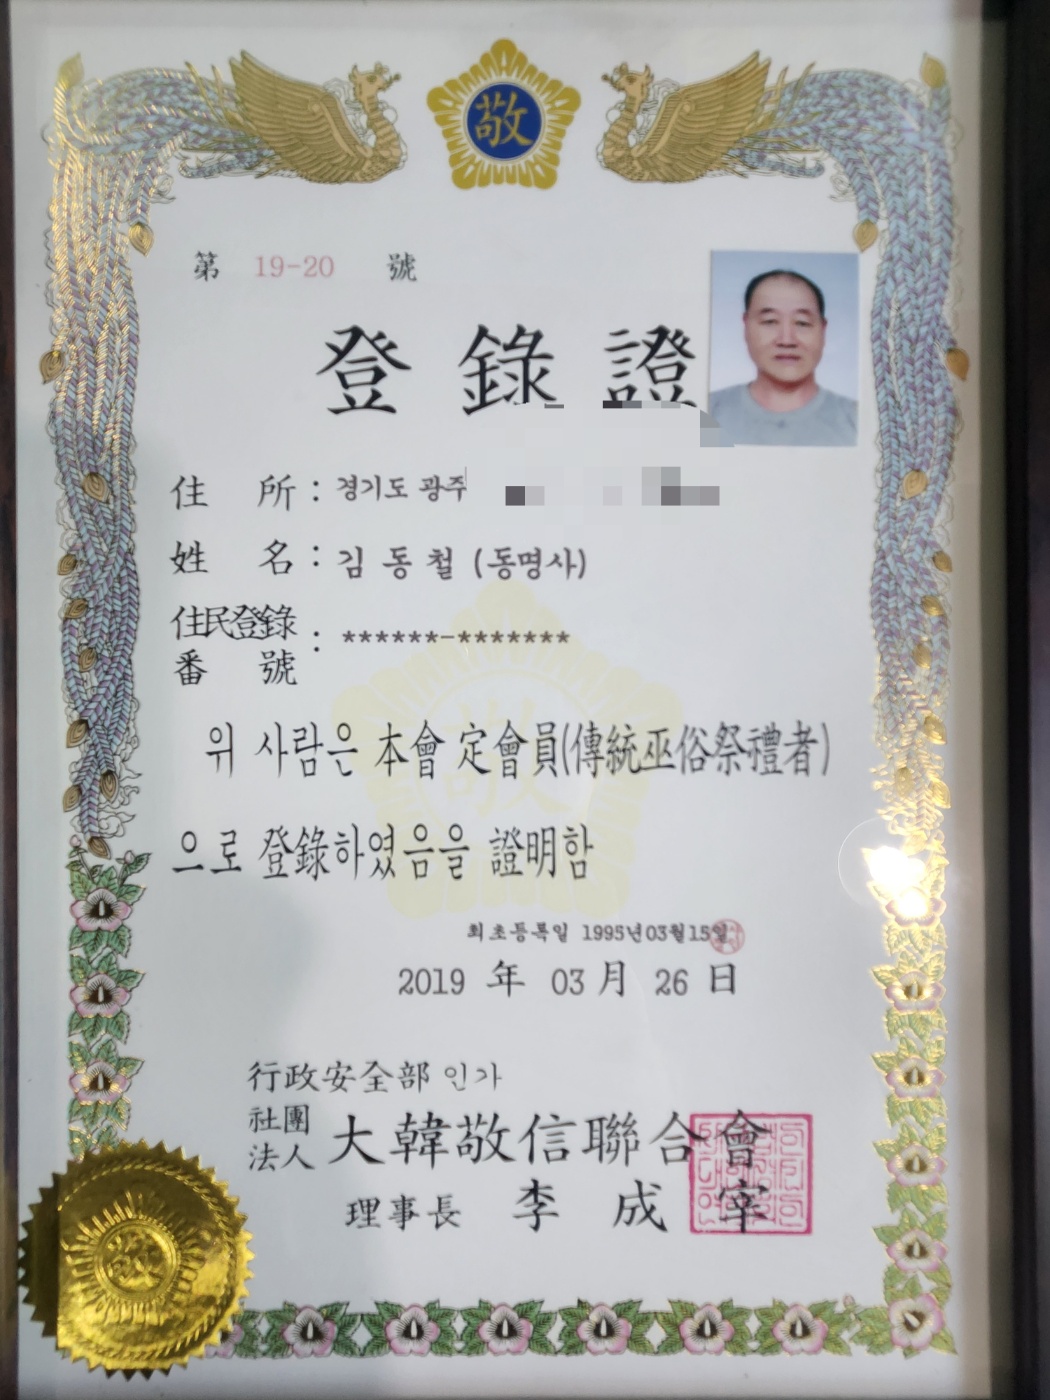 敬
第 19-20 號
登錄證
住 所 : 경기도 광주
姓 名 : 김 동 철 (동명사)
住民登錄
番 號 : ******-*******
위 사람은 本會 定會員(傳統巫俗祭禮者)
으로 登錄하였음을 證明함
최초등록일 1995년03월15일
2019 年 03 月 26 日
行政安全部 인가
社團
法人 大韓敬信聯合會
理事長 李 成 宰